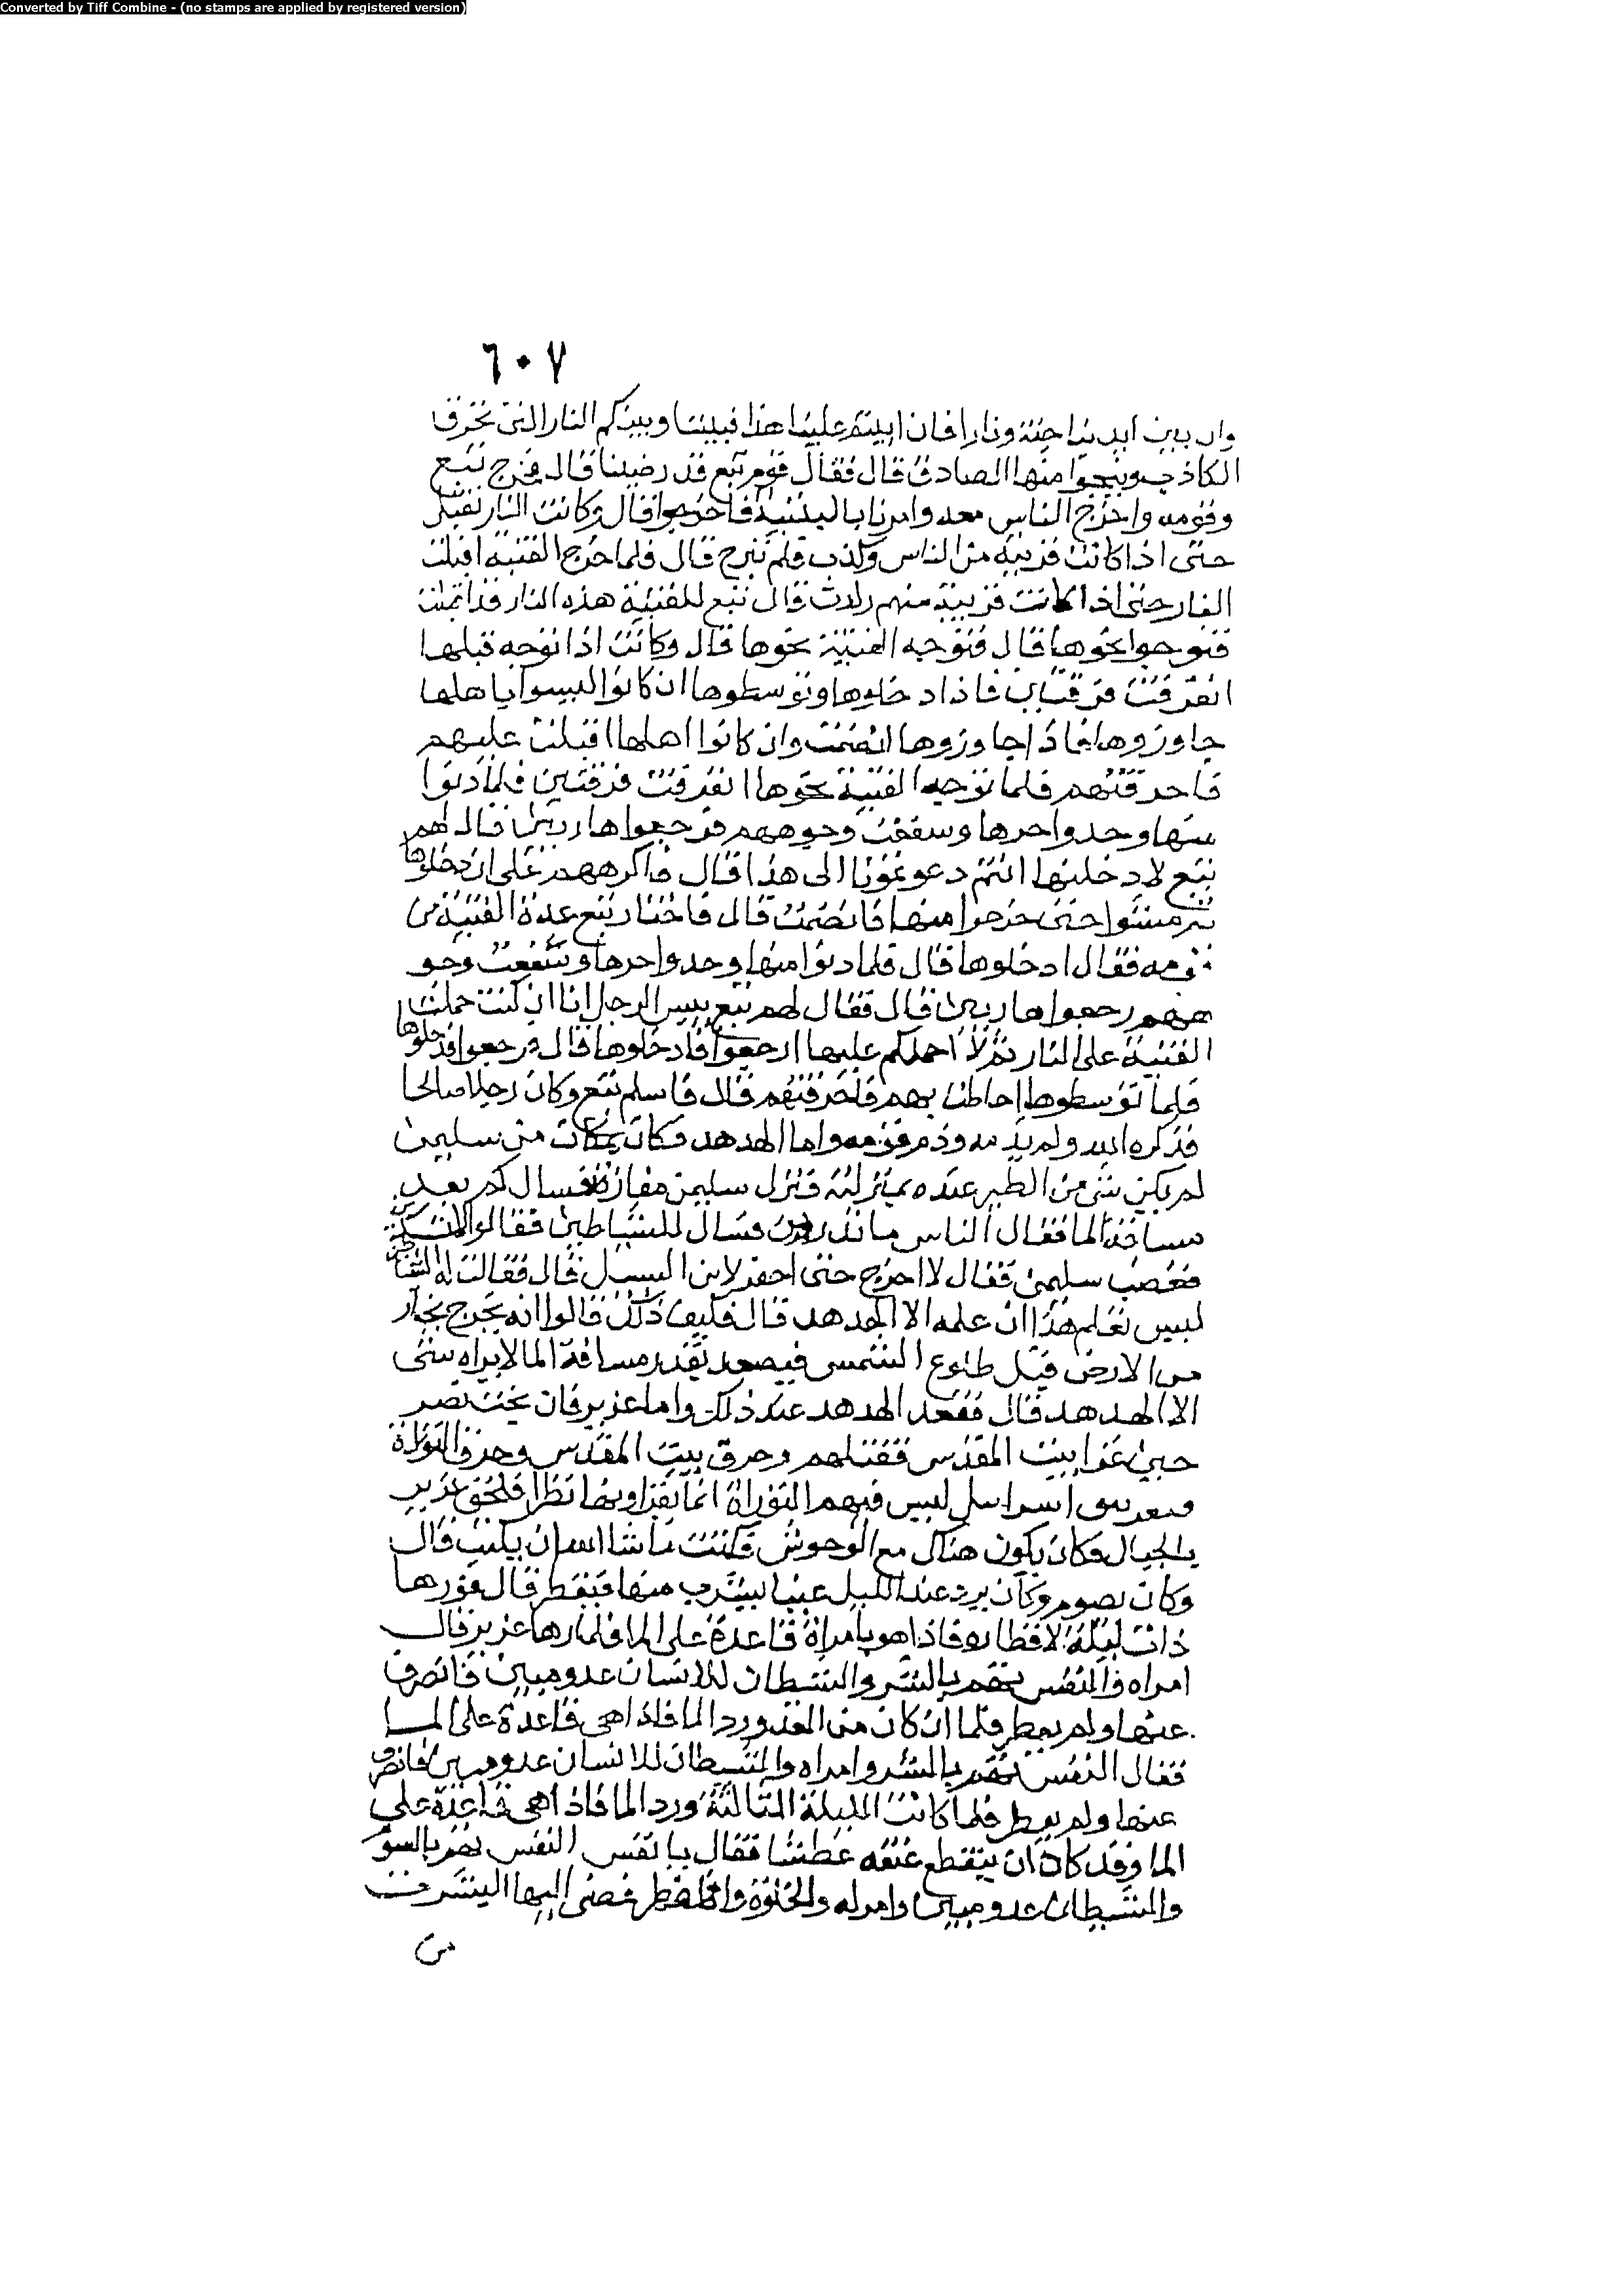 Converted by Tiff Combine - (no stamps are applied by registered version)
٦٠٧
وان بين ايدينا جنة ونارا فان ابيتم علينا هذا فبيننا وبينكم النار التي تحرق
الكاذب وينجوا منها الصادق قال فقال قوم تبع قد رضينا قال فخرج تبع
وقومه واخرج الناس معه وامرنا بالفتية فاخرجوا قال وكانت النار تقبل
حتى اذا كانت قريبة من الناس ركدت فلم تبرح قال فلما خرج الفتية اقبلت
النار حتى اذا كانت قريبة منهم ركدت قال تبع للفتية هذه النار قد اقبلت
فتوجهوا نحوها قال فتوجه الفتية نحوها قال وكانت اذا توجه قبلها
انفرقت فرقتين فاذا دخلوها وتوسطوها ان كانوا ليسوا باهلها
جاوزوها فاذا جاوزوها انضمت وان كانوا اهلها اقبلت عليهم
فاحرقتهم فلما توجه الفتية نحوها انفرقت فرقتين فلما دنوا
منها وجدوا حرها وسفعت وجوههم فرجعوا هاربين قال لهم
تبع لادخلنها انتم دعوتمونا الى هذا قال فاكرههم على ان دخلوها
ثم مشوا حتى خرجوا منها فانضمت قال فاختار تبع عدة الفتية من
قومه فقال ادخلوها قال فلما دنوا منها وجدوا حرها وسفعت وجو
ههم رجعوا هاربين قال فقال لهم تبع بيس الرجل انا ان كنت حملت
الفتية على النار ثم لا احملكم عليها ارجعوا فادخلوها قال فرجعوا فدخلوها
فلما توسطوها احاطت بهم فاحرقتهم قال فاسلم تبع وكان رجلا صالحا
فذكره الله ولم يذمه وذم قومه واما الهدهد فكان بمكان من سليمن
لم يكن شي من الطير عنده بمنزلته فنزل سليمن مفازة فسال كم بعد
مسافة الما فقال الناس ما ندري فسال للشياطين فقالوا لا ندري
فغضب سليمن فقال لا اخرج حتى احفر لابن السبيل قال فقالت له الشياطين
ليس تعلم هذا ان علمه الا الهدهد قال فكيف ذلك قالوا انه يخرج بخار
من الارض قبل طلوع الشمس فيصعد بقدر مسافة الما لا يراه شي
الا الهدهد قال ففقد الهدهد عند ذلك واما عزير فان بخت نصر
حين غزا بيت المقدس فقتلهم وحرق بيت المقدس وحرق التوراة
بني اسراىيل ليس فيهم التوراة انما يقراونها نظرا فلحق عزير
بالجبال فكان يكون هناك مع الوحوش فمكث ما شا الله ان يمكث قال
وكان يصوم وكان يرد عند الليل عينا يشرب منها فيفطر قال فوردها
ذات ليلة لافطاره فاذا هو بامراة قاعدة على الما فلما راها عزير قال
امراه والنفس تهم بالشر والشيطان للانسان عدو مبين فانصرف
عنها ولم يفطر فلما ان كان من الغد ورد الما فاذا هي قاعدة على الما
فقال النفس تهم بالشر وامراه والشيطان للانسان عدو مبين فانصرف
عنها ولم يفطر فلما كانت الليلة الثالثة ورد الما فاذا هي قاعدة على
الما وقد كان ان ينقطع عنقه عطشا فقال يا نفس النفس تهم بالسو
والشيطان عدو مبين وامراه والخلوة فمضى اليها ليشرب
من